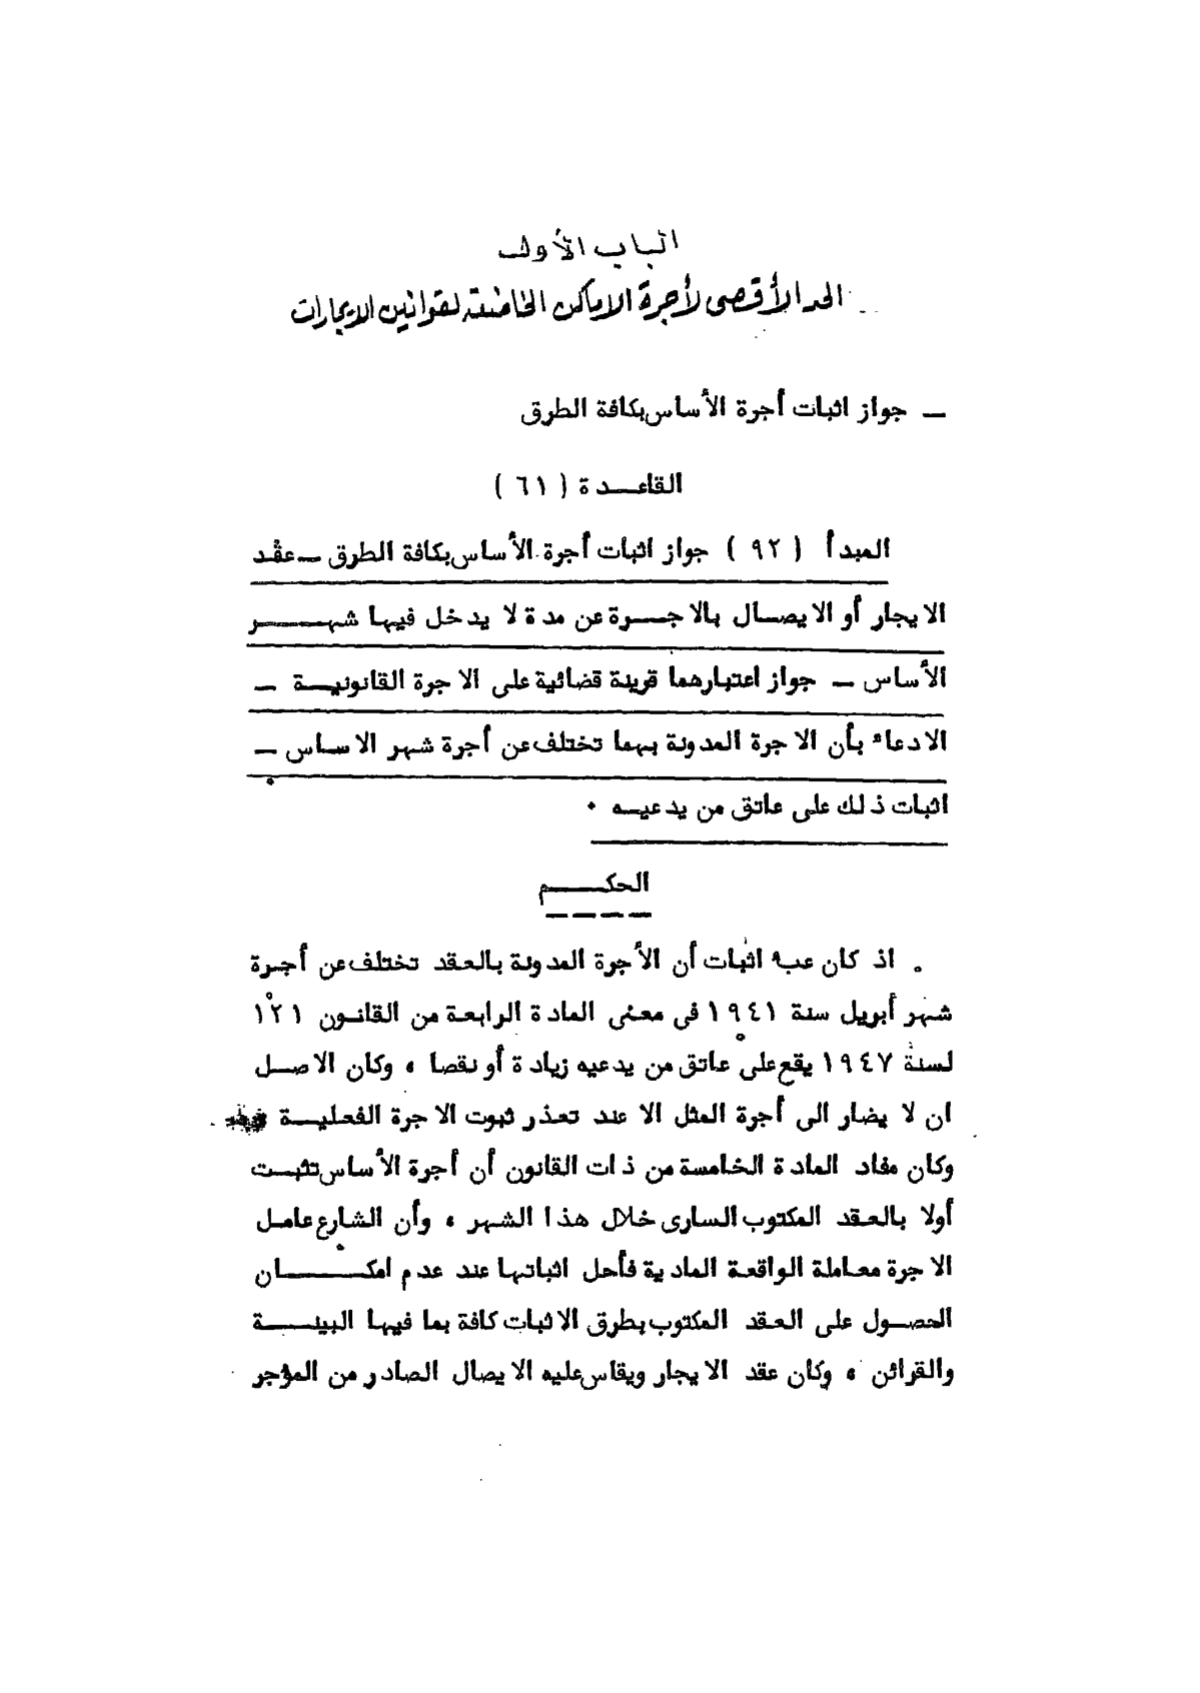 الباب الأول
الحد الأقصى لأجرة الاماكن الخاضعة لقوانين الايجارات
ـ جواز اثبات أجرة الأساس بكافة الطرق
القاعـــدة ( ٦١ )
المبدأ ( ٩٢ ) جواز اثبات أجرة الأساس بكافة الطرق ـ عقد
الايجار أو الايصـال بالاجــرة عن مدة لا يدخل فيها شهــر
الأساس ـ جواز اعتبارهما قرينة قضائية على الاجرة القانونيـة ـ
الادعاء بأن الاجرة المدونة بهما تختلف عن أجرة شهر الاساس ـ
اثبات ذلك على عاتق من يدعيـه ٠
الحكــم
٠ اذ كان عبء اثبات أن الأجرة المدونة بالعقد تختلف عن أجـرة
شهر أبريل سنة ١٩٤١ فى معنى المادة الرابعة من القانـون ١٢١
لسنة ١٩٤٧ يقع على عاتق من يدعيه زيادة أو نقصا ، وكان الاصـل
ان لا يضار الى أجرة المثل الا عند تعذر ثبوت الاجرة الفعليـة
وكان مفاد المادة الخامسة من ذات القانون أن أجرة الأساس تثبـت
أولا بالعقد المكتوب السارى خلال هذا الشهر ، وأن الشارع عامـل
الاجرة معاملة الواقعة المادية فأحل اثباتها عند عدم امكــان
الحصـول على العقد المكتوب بطرق الاثبات كافة بما فيها البينــة
والقرائن ، وكان عقد الايجار ويقاس عليه الايصال الصادر من المؤجر